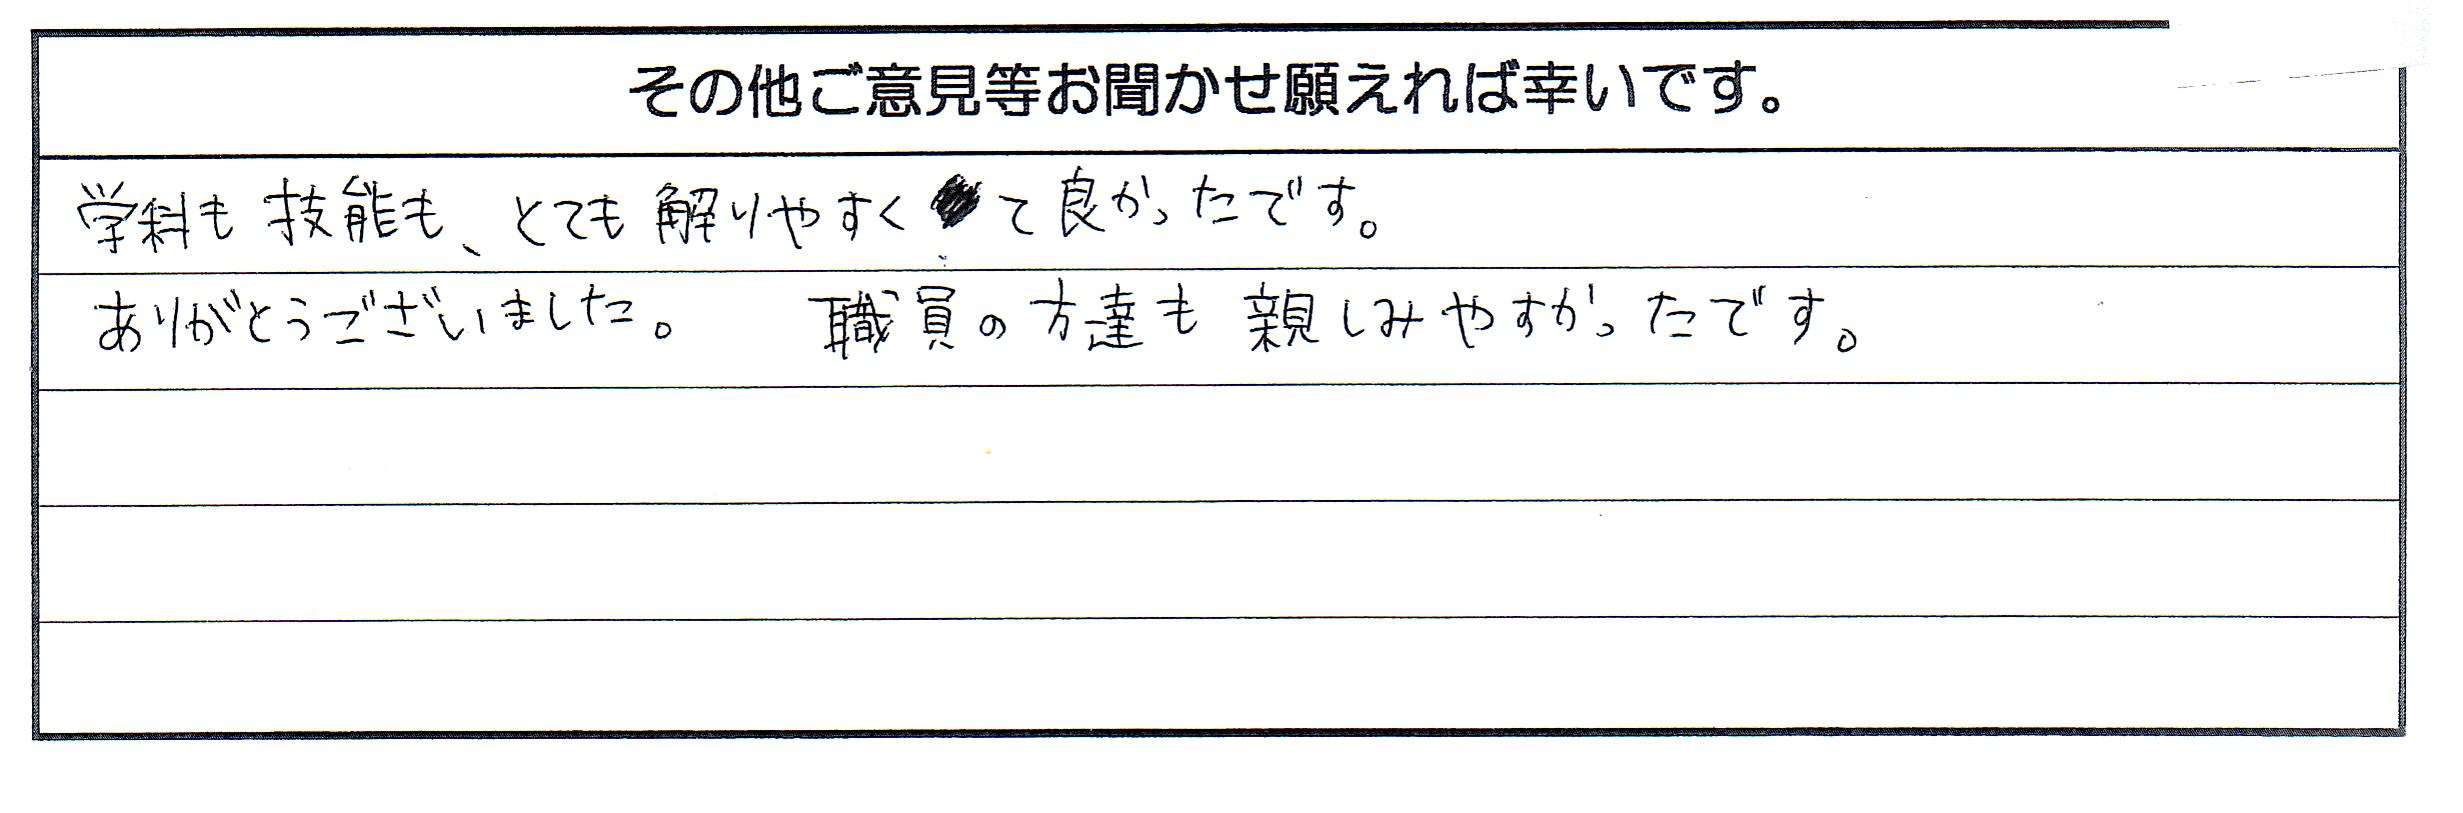 その他ご意見等お聞かせ願えれば幸いです。
学科も技能も、とても解りやすくて良かったです。
ありがとうございました。 職員の方達も親しみやすかったです。